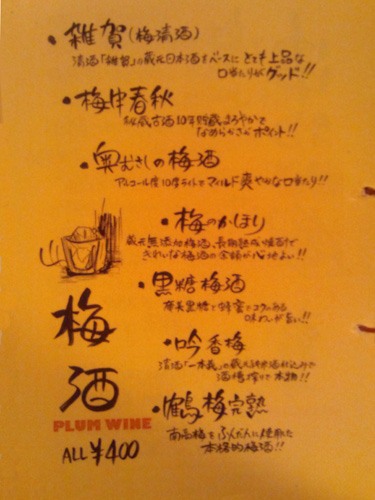 ・雑賀(梅清酒)
清酒「雑賀」の蔵元日本酒をベースにとても上品な
口当たりがグッド!!
・梅申春秋
秘蔵古酒10年貯蔵まろやかで
なめらかさがポイント!!
・奥むさしの梅酒
アルコール度10度ライトでマイルド爽やかな口当たり!!
・梅のかほり
蔵元無添加梅酒、長期熟成
きれいな梅酒の余韻が心地よい!!
・黒糖梅酒
奄美黒糖と蜂蜜でコクのある
味わいが旨い!!
・吟香梅
清酒「一本義」の蔵元
酒槽搾りで本物!!
・鶴梅完熟
南高梅をふんだんに使った
本格的梅酒!!
梅酒
PLUM WINE
ALL ¥400